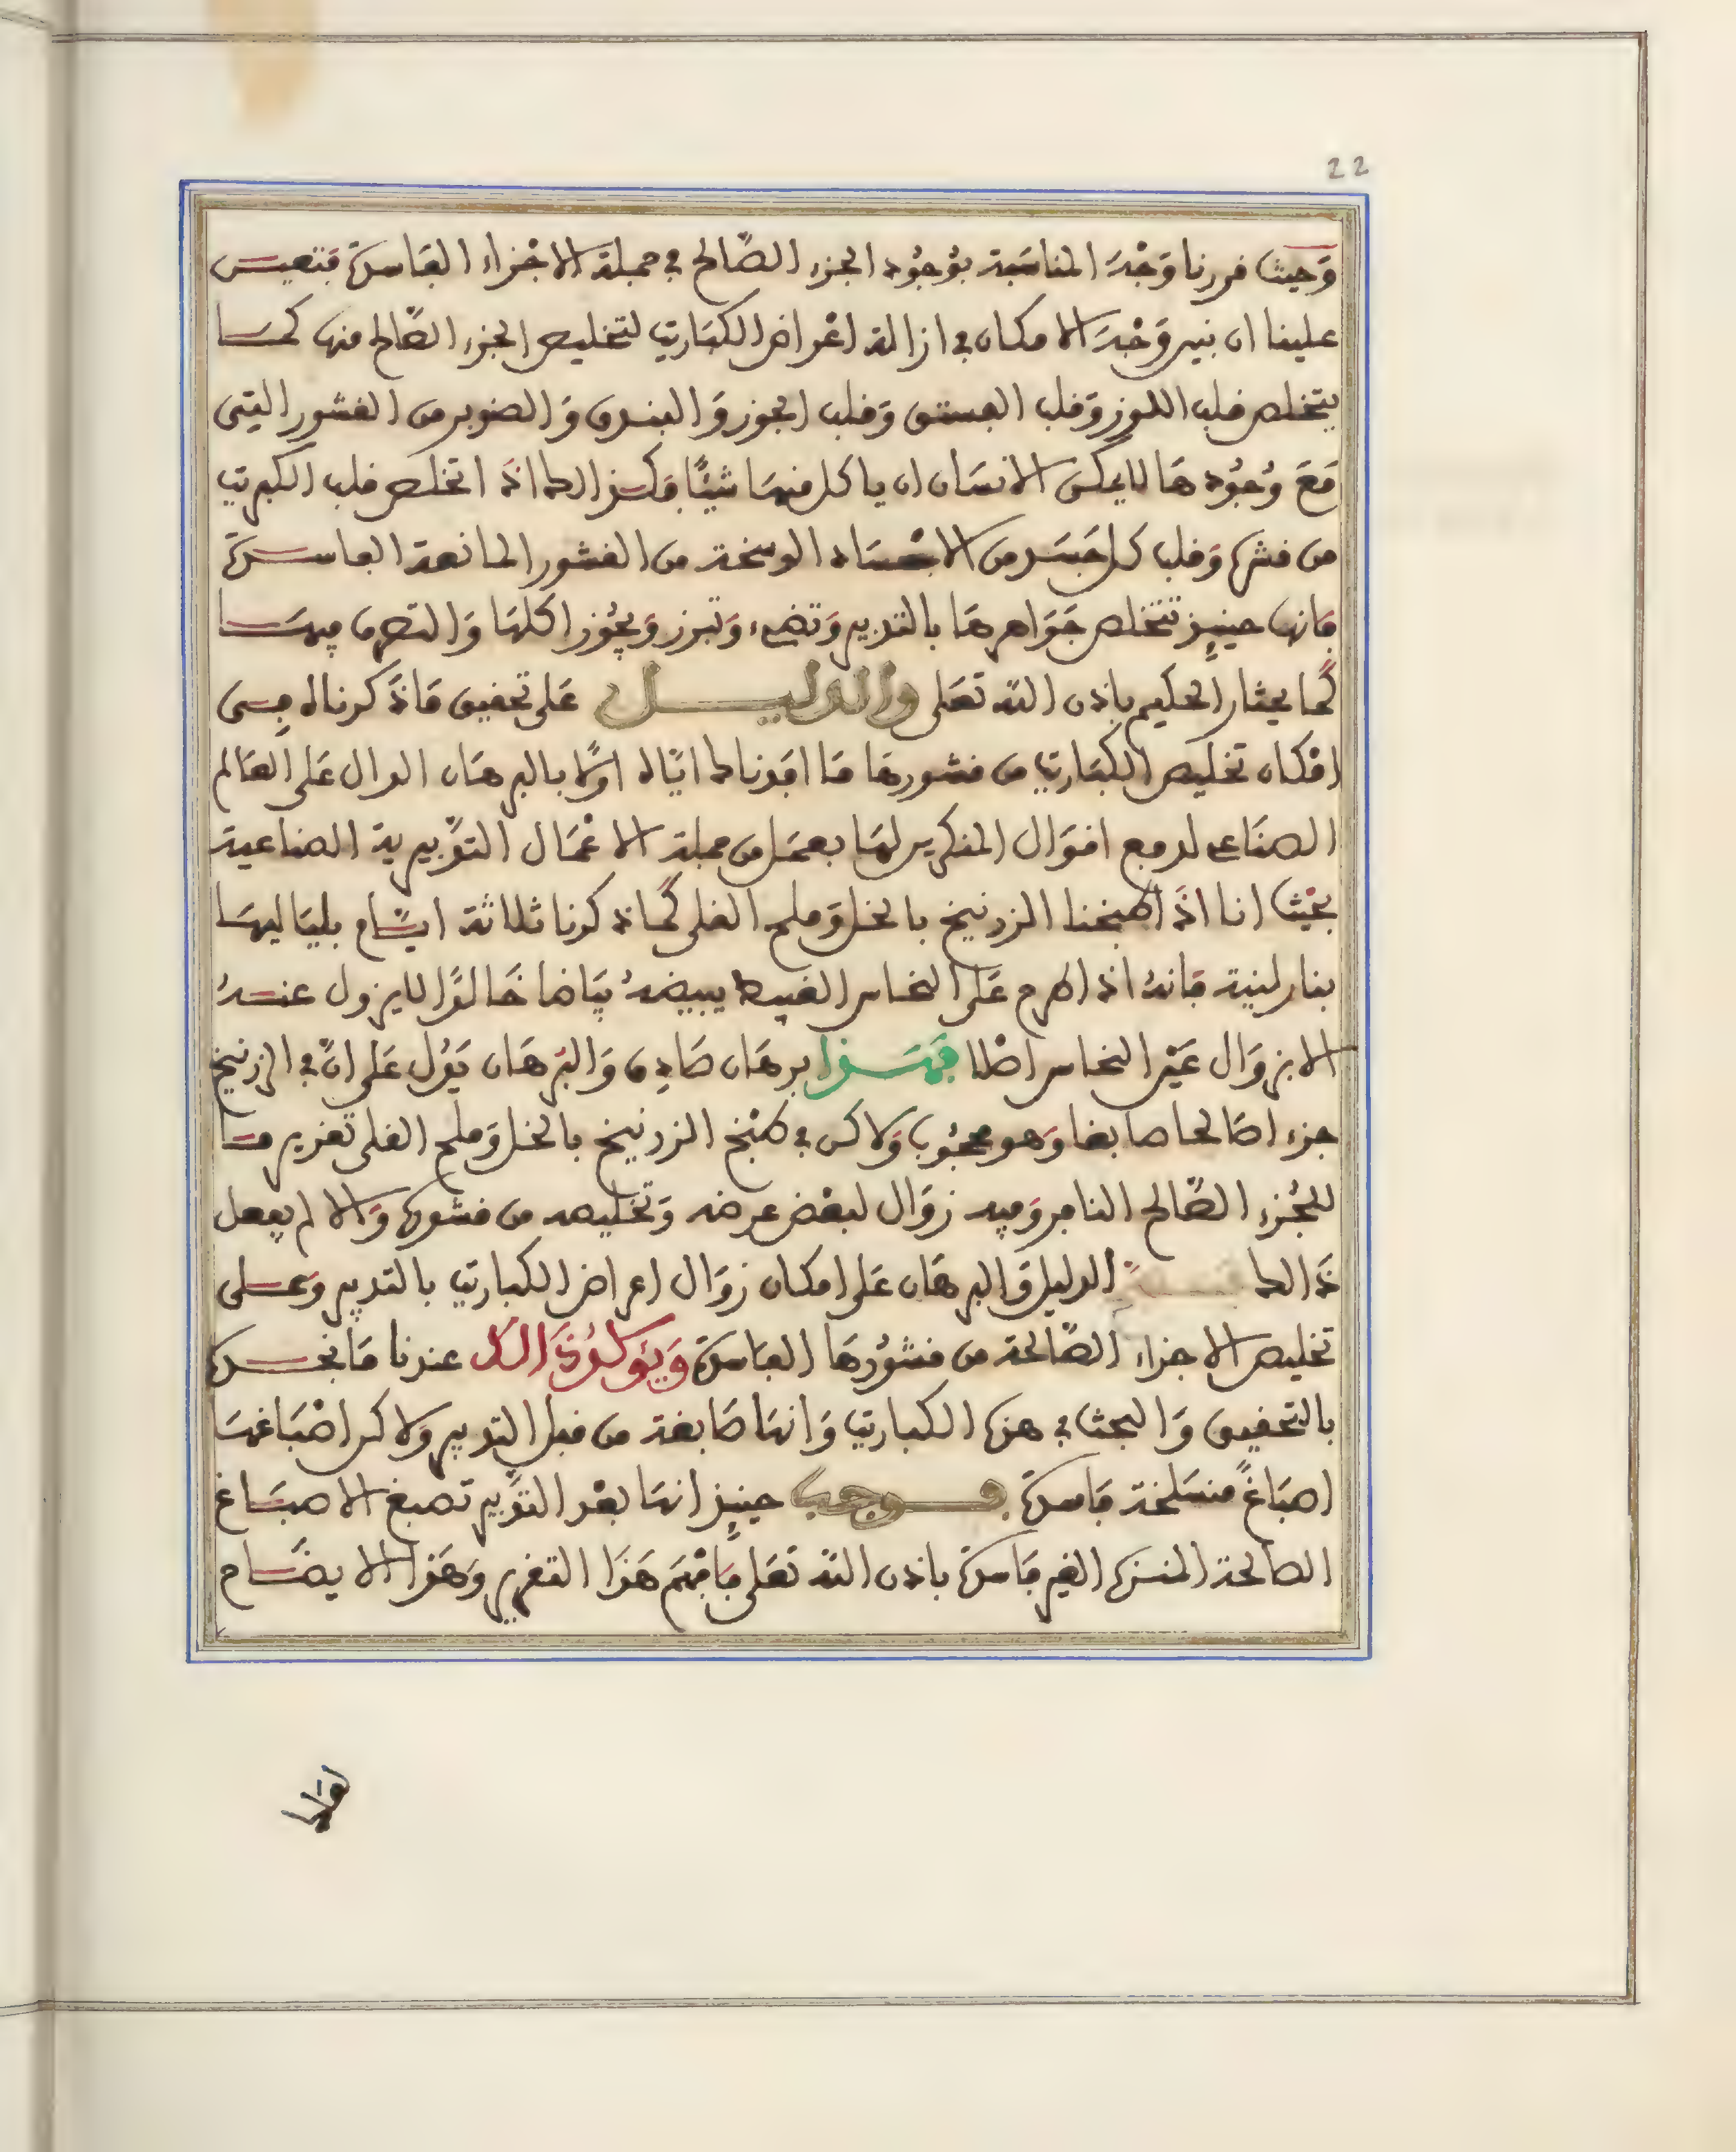 22
وَحيث قررنا وَجْهَ المناسَبة بوُجُود الجزء الصَّالح في جملة الاجْزاء الفَاسدة فتعيــن
علينا ان نبين وَجْهَ الامكان في ازالة اعْراض الكبَاريت لتخليص الجزء الصَّالح منها كمــا
يتخلص قلب اللوز وَقلب الفستق وَقلب الجوز وَالبندق وَالصنوبر من القشور التي
مَعَ وُجُودهَا لا يمكن الانسَان ان ياكل منهَا شيئًا فكذالك اذَا تخلص قلب الكبريت
من قشره وَقلب كل جَسَد من الاجْسَاد الوسخة من القشور المانعة الفاســدة
فانها حينئِذ تتخلص جَوَاهرهَا بالتدبير وَتضيء وَتبرز وَيجُوز اكلهَا وَالتصرف فيهَــا
كَمَا يختار الحكيم باذن الله تعَلى والدليــــل عَلى تحقيق مَا ذَكرناه فـِـى
امْكان تخليص الكبَاريت من قشورهَا مَا افدناك ايّاه اوّلا بالبرهَان الدال عَلى العَالم
الصنَاعي لدفع اقوَال المنكرين لهَا بعمَل من جملة الاعْمَال التدْبيرية الصناعية
بحَيْث انا اذَا طبخنا الزرنيخ بالخل وَملح القلى كَمَا ذكرنا ثلاثة ايَّــام بليَاليهَا
بنار لينة فانهُ اذا طرح عَلى النحاس القبيط يبيضهُ بيَاضا خَالدًا لا يزول عنــهُ
الا بزوَال عَيْن النحاس اصْلا فهَــذا برهَان صَادِق وَالبرهَان يَدُل عَلى انّ في الزرنيخ
جزءا صَالحا صَابغا وَهو محجُوب وَلاكن في طبْخ الزرنيخ بالخل وَملح القلى تغزير مــا
للجُزء الصَّالح النافر وَفيه زوَال لبعْض عرضه وَتخليصه من قشوره وَالا لم يفعل
ذَالك الدليل وَالبرهَان عَلى امكان زوَال اعراض الكباريت بالتدبير وَعــلى
تخليص الاجزاء الصَّالحة من قشُورهَا الفَاسدة وَيُؤكدُ ذَالك عندنا مَا نجــده
بالتحقيق وَالبحث في هذه الكباريت وَانهَا صَابغة من قبل التدبير وَلاكن اصْبَاغهَا
اصبَاغٌ منسَلخة فاسدة فـــوجب حينئِذ انهَا بعْد التدْبير تصبغ الاصبَــاغ
الصَالحة المنزه الغير فَاسدة باذن الله تعَلى فافْهَمَ هَذَا التقرير وَهَذا الايضَــاح